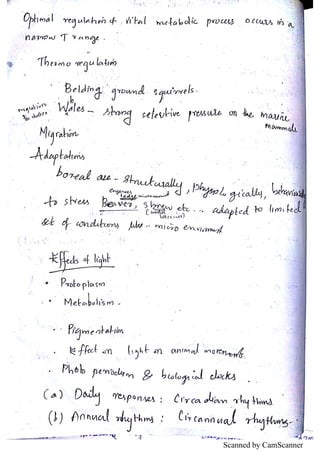 Optimal regulation of vital metabolic process occurs in a
narrow T range.
Thermo regulation
Belding ground squirrels.
Wales – strong selective pressure on the marine
mammals
Migration
Adaptations
boreal are – structurally, physiologically,
to stress Beaver, Shrew etc... adapted to limited
set of conditions like – micro environment
Effects of light
• Protoplasm
• Metabolism.
• Pigmentation
• Effect on light on animal movements.
• Photo periodism & biological clocks
(a) Daily responses : Circadian rhythms
(b) Annual rhythms : Circannual rhythms.
Scanned by CamScanner